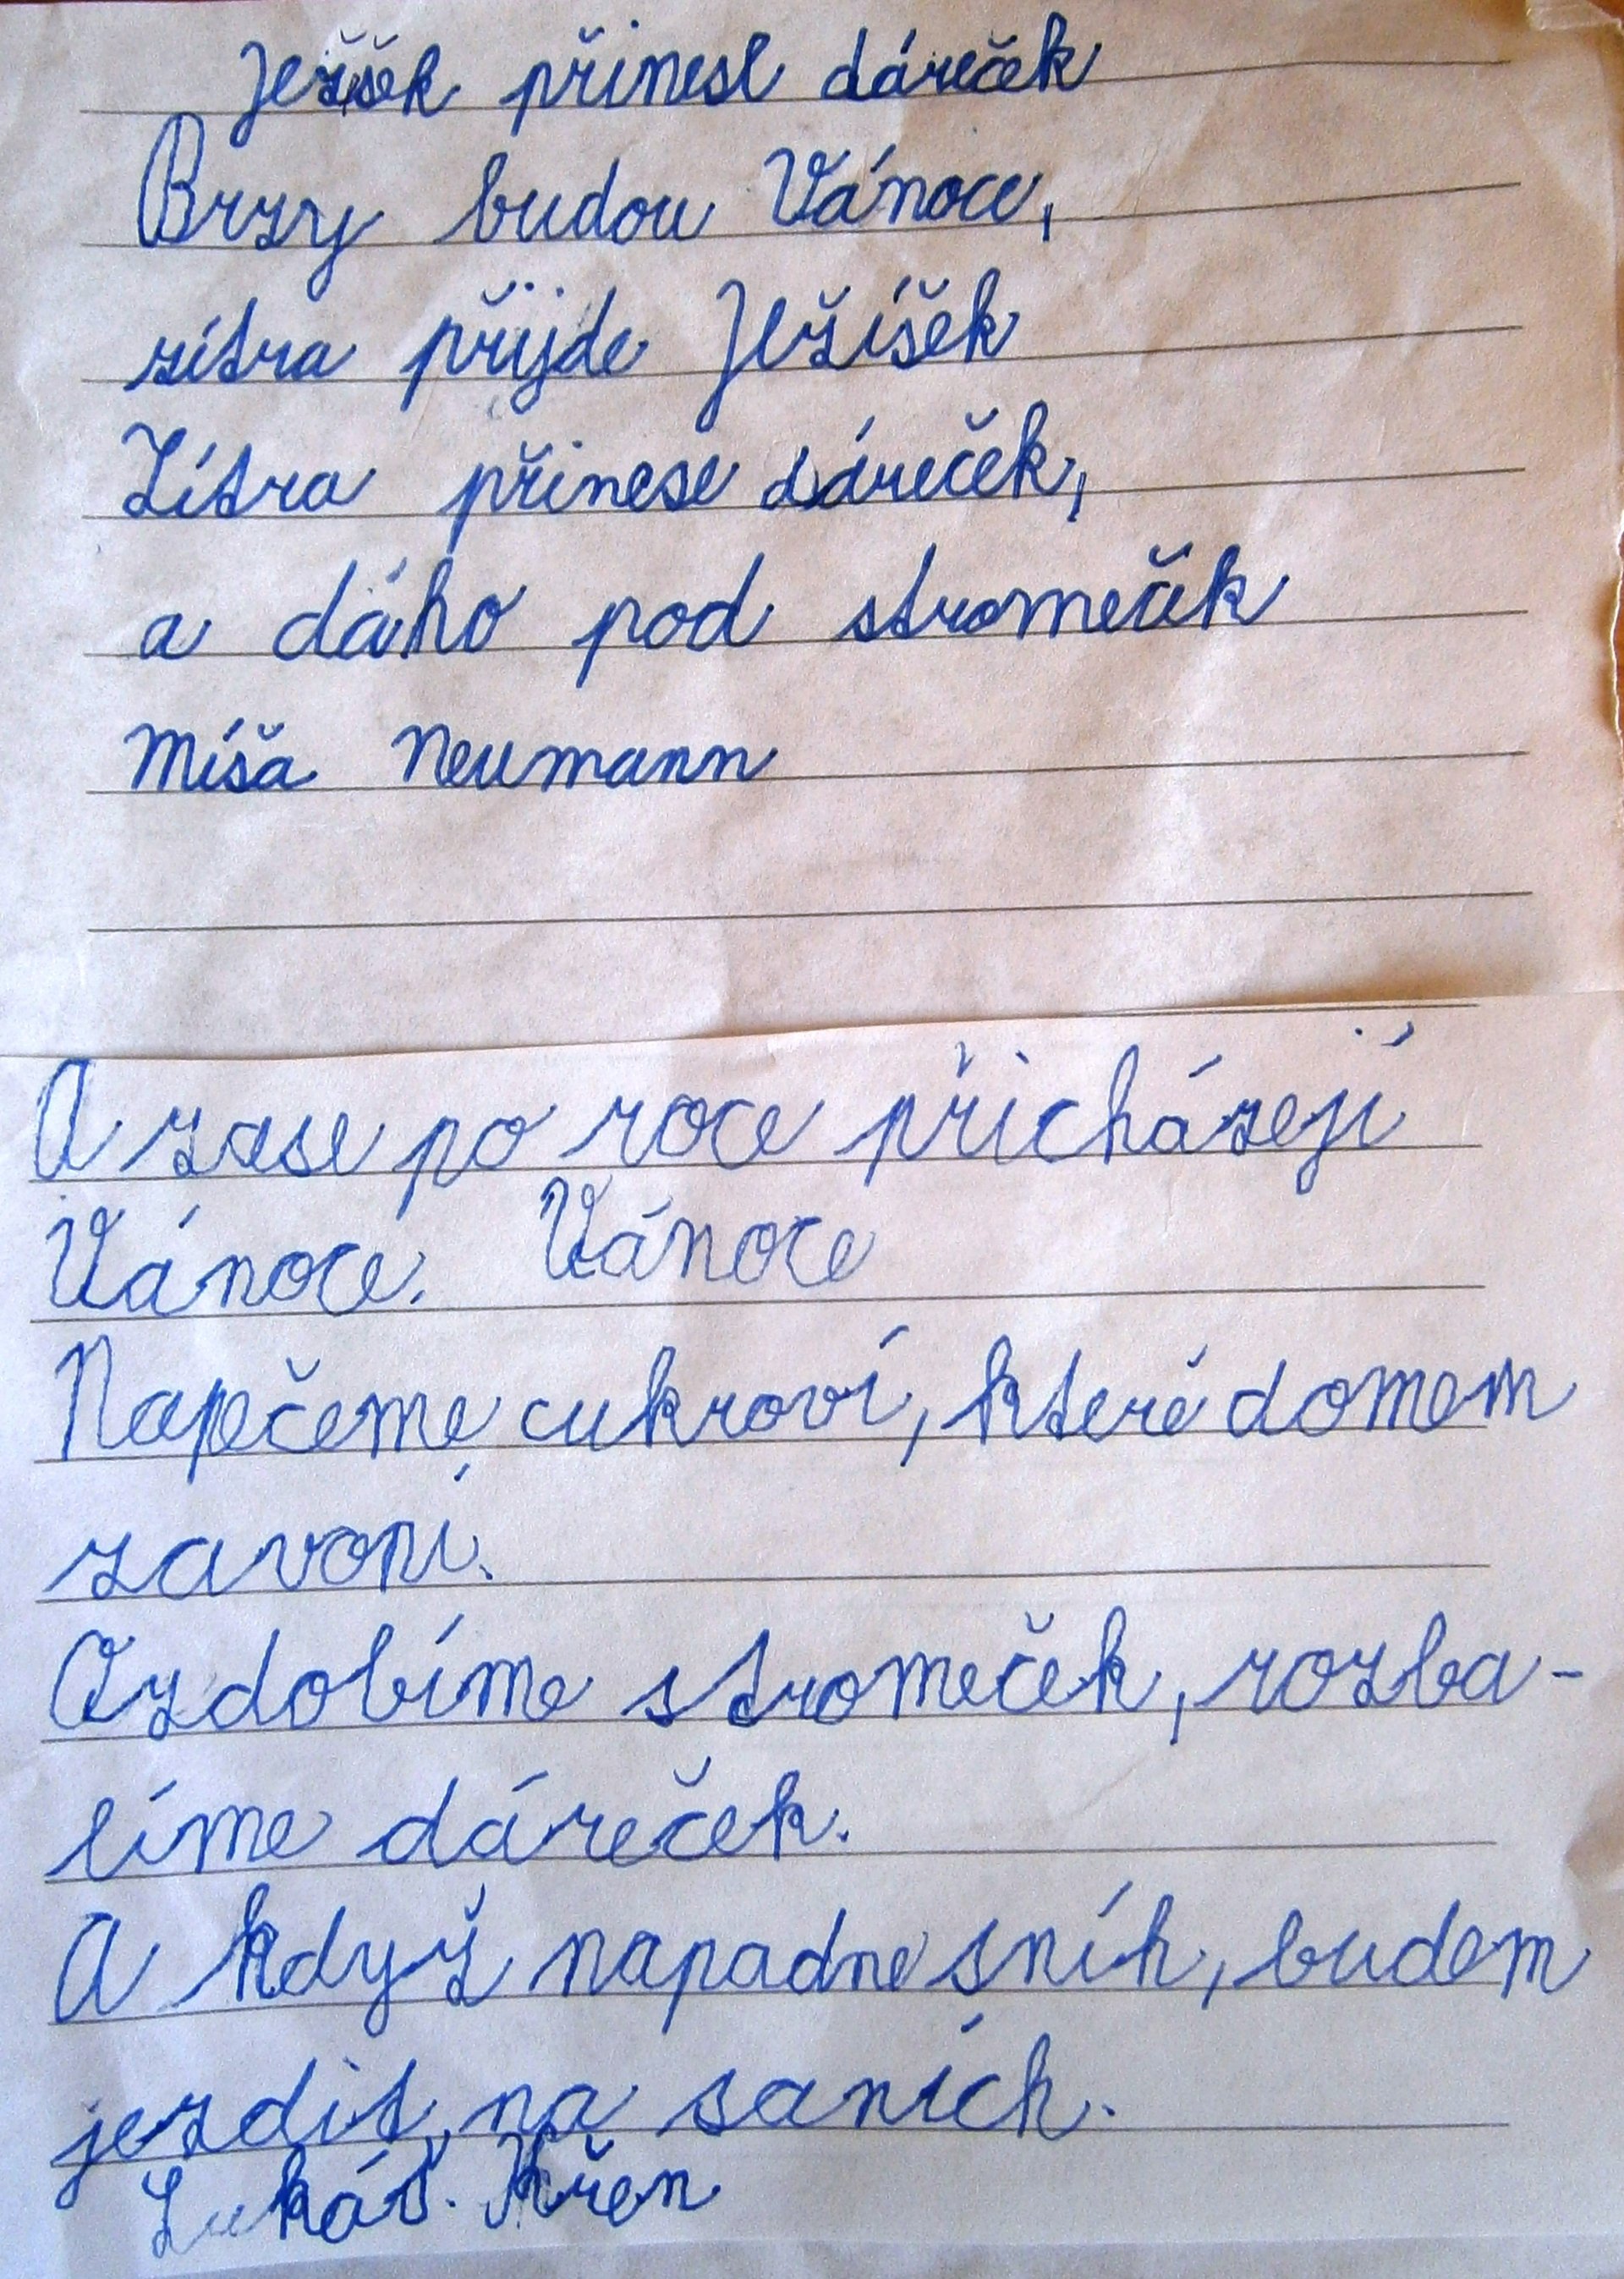 Ježíšek přinesl dáreček
Brzy budou Vánoce,
zítra přijde Ježíšek
Zítra přinese dáreček,
a dáho pod stromeček
Míša Neumann
A zase po roce přicházejí
Vánoce. Vánoce
Napečeme cukroví, které domem
zavoní.
Ozdobíme stromeček, rozba-
líme dáreček.
A když napadne sníh, budem
jezdit na saních.
Lukáš Křen